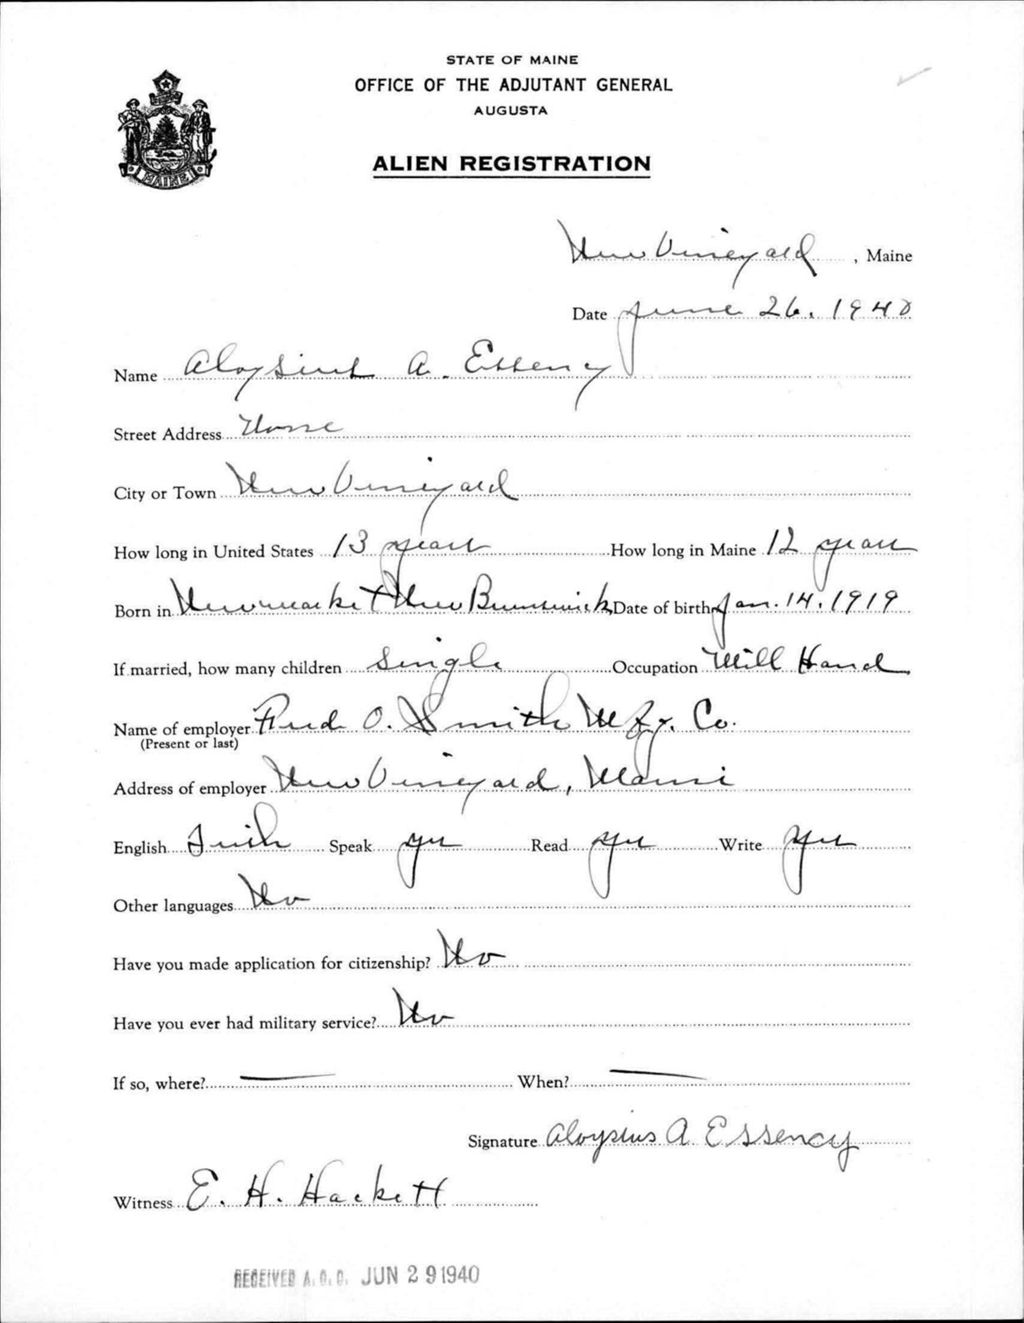 STATE OF MAINE
OFFICE OF THE ADJUTANT GENERAL
AUGUSTA
MAINE
ALIEN REGISTRATION
New Vineyard, Maine
Date June 26, 1940
Name Aloysius A. Essency
Street Address None
City or Town New Vineyard
How long in United States 13 years How long in Maine 12 years
Born in Newmarket New Brunswick Date of birth Jan. 14, 1919
If married, how many children Single Occupation Mill Hand
Name of employer Fred O. Smith Mfg. Co.
(Present or last)
Address of employer New Vineyard, Maine
English Speak yes Read yes Write yes
Other languages No
Have you made application for citizenship? No
Have you ever had military service? No
If so, where? — When? —
Signature Aloysius A Essency
Witness E. H. Hackett
RECEIVED A.G.O. JUN 29 1940